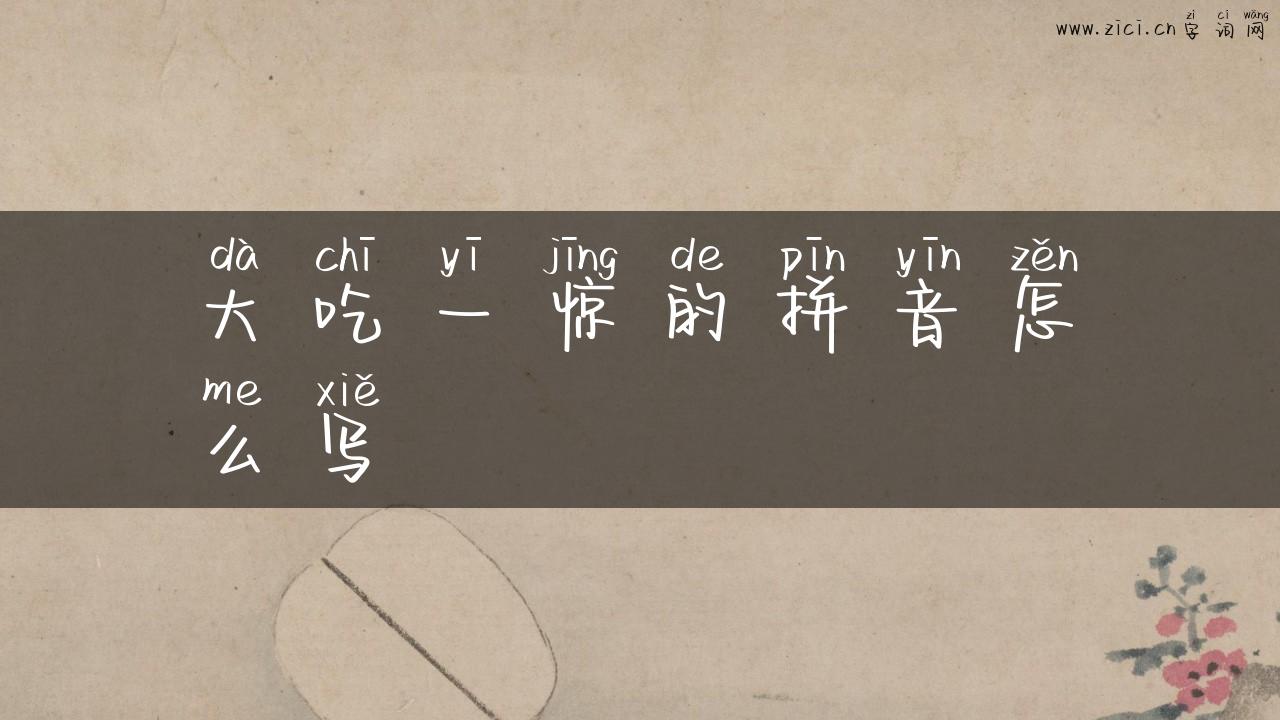 zì cí wǎng
www.zici.cn字词网
dà chī yī jīng de pīn yīn zěn
大吃一惊的拼音怎
me xiě
么写